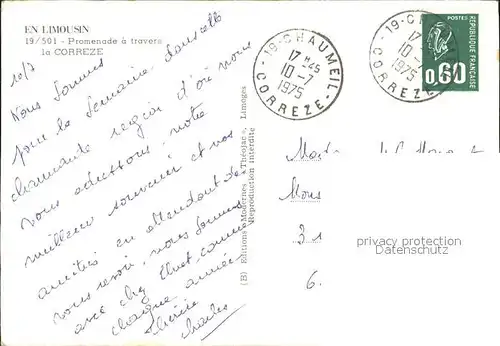 EN LIMOUSIN
19/501 - Promenade à travers
la CORREZE
10/7
Nous sommes
pour la semaine dans cette
charmante region d'où nous
vous adressons notre
meilleur souvenir et nos
amitiés en attendant de
vous revoir, nous sommes
avec chez comme
chaque année
Thérèse
Charles
(B) Editions Modernes « Théojac », Limoges
Reproduction interdite
19-CHAUMEIL-
17 H45
10-7
1975
CORREZE
19-C
17
10
1975
CORREZE
POSTES
0,60
REPUBLIQUE FRANÇAISE
Mons
31
6.
privacy protection
Datenschutz